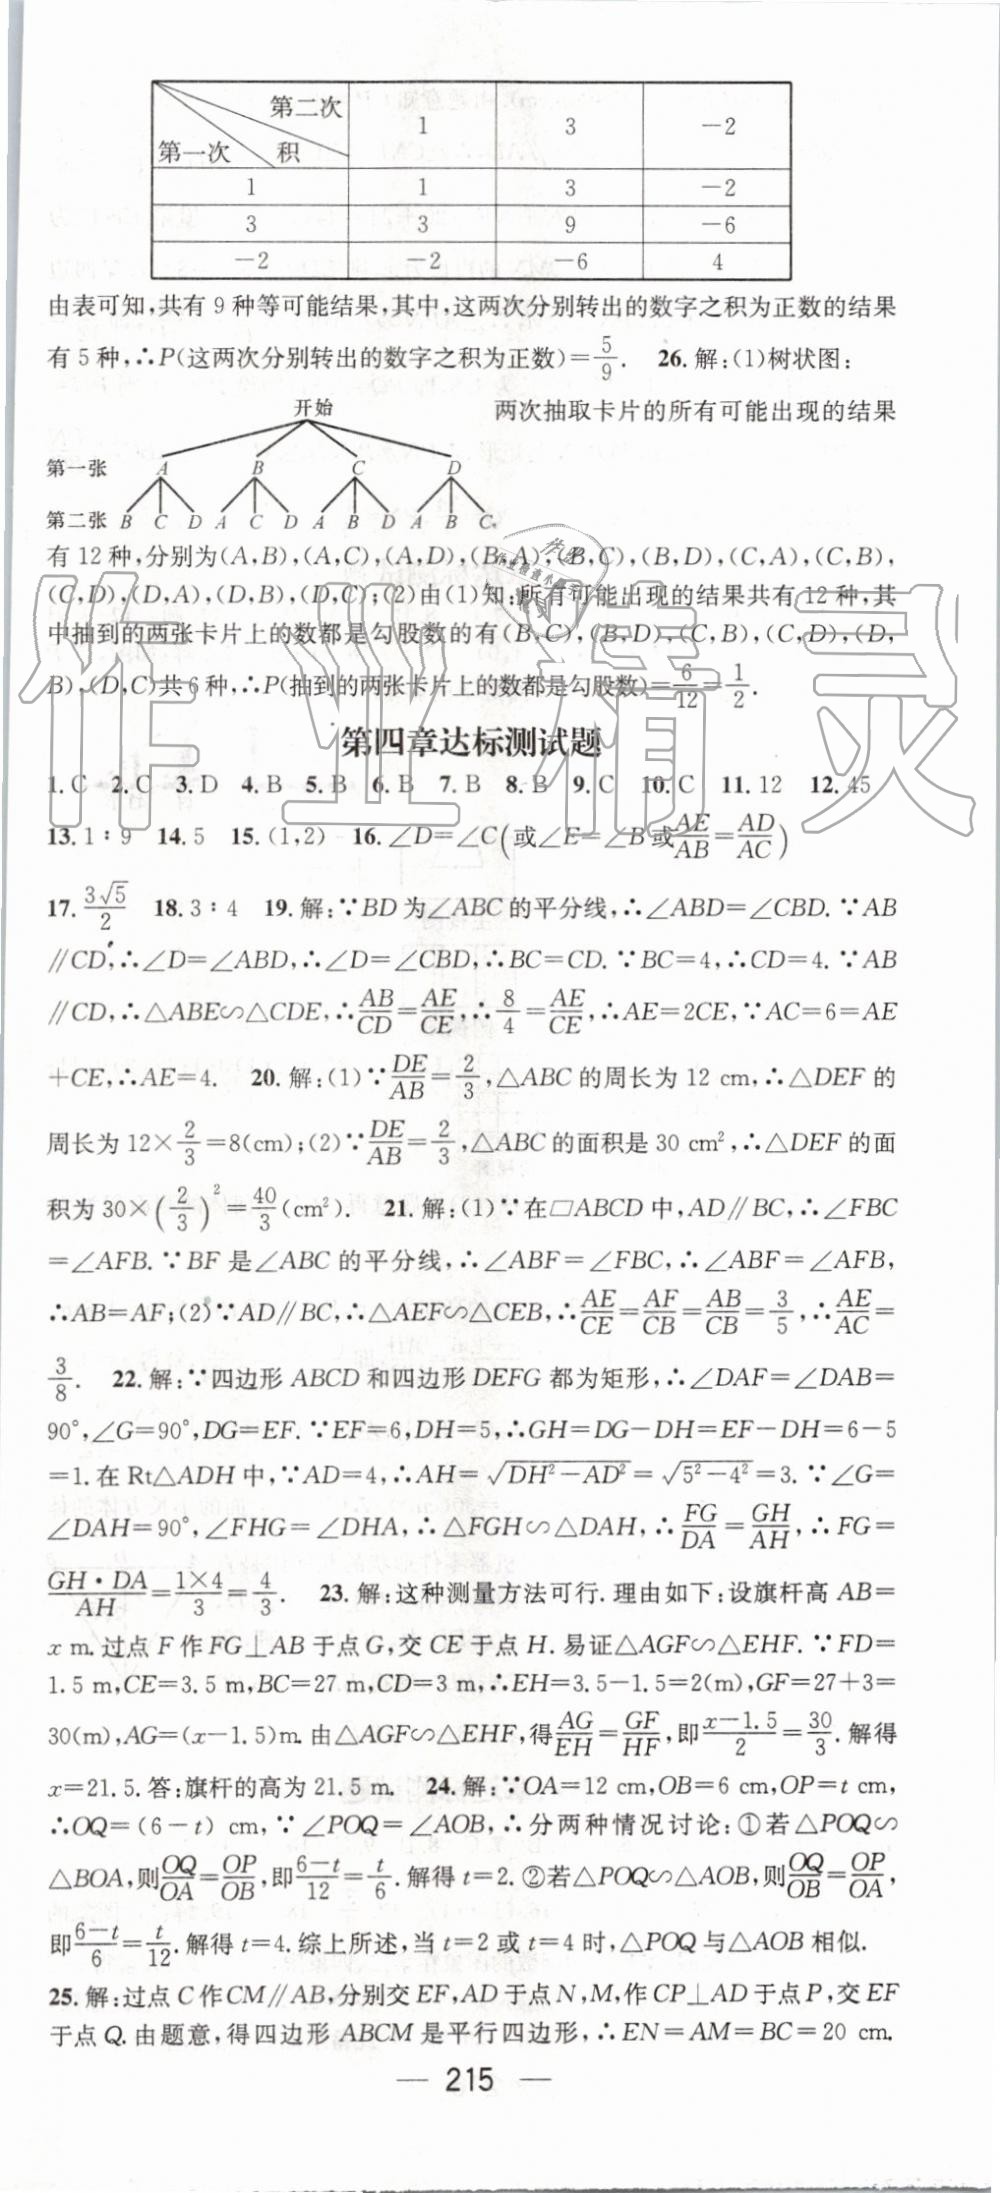 第二次
第一次 积 1 3 －2
1 1 3 －2
3 3 9 －6
－2 －2 －6 4
由表可知,共有 9 种等可能结果,其中,这两次分别转出的数字之积为正数的结果
有 5 种,∴P(这两次分别转出的数字之积为正数)＝5/9. 26.解:(1)树状图:
开始 两次抽取卡片的所有可能出现的结果
第一张 A B C D
第二张 B C D A C D A B D A B C
有 12 种,分别为(A,B),(A,C),(A,D),(B,A),(B,C),(B,D),(C,A),(C,B),
(C,D),(D,A),(D,B),(D,C);(2)由(1)知:所有可能出现的结果共有 12 种,其
中抽到的两张卡片上的数都是勾股数的有(B,C),(B,D),(C,B),(C,D),(D,
B),(D,C)共 6 种,∴P(抽到的两张卡片上的数都是勾股数)＝6/12＝1/2.
第四章达标测试题
1.C 2.C 3.D 4.B 5.B 6.B 7.B 8.B 9.C 10.C 11.12 12.45
13.1∶9 14.5 15.(1,2) 16.∠D＝∠C(或∠E＝∠B或AE/AB＝AD/AC)
17.3√5/2 18.3∶4 19.解:∵BD为∠ABC的平分线,∴∠ABD＝∠CBD.∵AB
∥CD,∴∠D＝∠ABD,∴∠D＝∠CBD,∴BC＝CD.∵BC＝4,∴CD＝4.∵AB
∥CD,∴△ABE∽△CDE,∴AB/CD＝AE/CE,∴8/4＝AE/CE,∴AE＝2CE,∵AC＝6＝AE
＋CE,∴AE＝4. 20.解:(1)∵DE/AB＝2/3,△ABC的周长为12 cm,∴△DEF的
周长为12×2/3＝8(cm);(2)∵DE/AB＝2/3,△ABC的面积是30 cm²,∴△DEF的面
积为30×(2/3)²＝40/3(cm²). 21.解:(1)∵在□ABCD中,AD∥BC,∴∠FBC
＝∠AFB.∵BF是∠ABC的平分线,∴∠ABF＝∠FBC,∴∠ABF＝∠AFB,
∴AB＝AF;(2)∵AD∥BC,∴△AEF∽△CEB,∴AE/CE＝AF/CB＝AB/CB＝3/5,∴AE/AC＝
3/8. 22.解:∵四边形ABCD和四边形DEFG都为矩形,∴∠DAF＝∠DAB＝
90°,∠G＝90°,DG＝EF.∵EF＝6,DH＝5,∴GH＝DG－DH＝EF－DH＝6－5
＝1.在Rt△ADH中,∵AD＝4,∴AH＝√(DH²－AD²)＝√(5²－4²)＝3.∵∠G＝
∠DAH＝90°,∠FHG＝∠DHA,∴△FGH∽△DAH,∴FG/DA＝GH/AH,∴FG＝
GH·DA/AH＝1×4/3＝4/3. 23.解:这种测量方法可行.理由如下:设旗杆高AB＝
x m.过点F作FG⊥AB于点G,交CE于点H.易证△AGF∽△EHF.∵FD＝
1.5 m,CE＝3.5 m,BC＝27 m,CD＝3 m,∴EH＝3.5－1.5＝2(m),GF＝27＋3＝
30(m),AG＝(x－1.5)m.由△AGF∽△EHF,得AG/EH＝GF/HF,即x－1.5/2＝30/3.解得
x＝21.5.答:旗杆的高为21.5 m. 24.解:∵OA＝12 cm,OB＝6 cm,OP＝t cm,
∴OQ＝(6－t) cm,∵∠POQ＝∠AOB,∴分两种情况讨论:①若△POQ∽
△BOA,则OQ/OA＝OP/OB,即6－t/12＝t/6.解得t＝2.②若△POQ∽△AOB,则OQ/OB＝OP/OA,
即6－t/6＝t/12.解得t＝4.综上所述,当t＝2或t＝4时,△POQ与△AOB相似.
25.解:过点C作CM∥AB,分别交EF,AD于点N,M,作CP⊥AD于点P,交EF
于点Q.由题意,得四边形ABCM是平行四边形,∴EN＝AM＝BC＝20 cm.
— 215 —
作业精灵